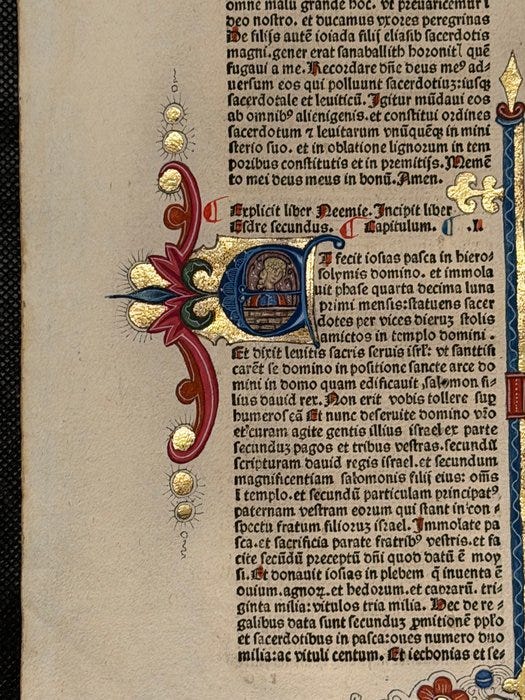 omne malū grande hoc. vt preuaricemur ī
deo nostro. et ducamus vxores peregrinas
De filijs autē ioiada filij eliasib sacerdotis
magni.gener erat sanaballith horonit⁹ quē
fugaui a me. Recordare dñe deus me⁹ ad-
uersum eos qui polluunt sacerdotiuz:iusqz
sacerdotale et leuiticū. Igitur mūdaui eos
ab omnib⁹ alienigenis.et constitui ordines
sacerdotum ⁊ leuitarum vnūquēqz in mini
sterio suo. et in oblatione lignorum in tem
poribus constitutis et in premitijs. Memē
to mei deus meus in bonū. Amen.
Explicit liber Neemie. Incipit liber
Esdre secundus. Capitulum. .I.
ET fecit iosias pasca in hiero-
solymis domino. et immola
uit phase quarta decima luna
primi mensis:statuens sacer
dotes per vices dieruz stolis
amictos in templo domini.
Et dixit leuitis sacris seruis isrl': vt sanctifi
carēt se domino in positione sancte arce do
mini in domo quam edificauit salomon fi-
lius dauid rex. Non erit vobis tollere sup
humeros eā Et nunc deseruite domino vr̄o
et curam agite gentis illius israel ex parte
secunduz pagos et tribus vestras. secundū
scripturam dauid regis israel. et secundum
magnificentiam salomonis filij eius: om̄s
ī templo. et secundū particulam principat⁹
paternam vestram eorum qui stant in con-
spectu fratrum filioruz israel. Immolate pa
sca.et sacrificia parate fratrib⁹ vestris.et fa
cite secūdū preceptū dñi quod datū ē moy
si. Et donauit iosias in plebem q̄ inuenta ē
ouium.agnoꝝ.et hedorum.et caprarū. tri-
ginta milia:vitulos tria milia. Hec de re-
galibus data sunt secunduz ꝓmitionē ppl'o
et sacerdotibus in pasca:oues numero duo
milia:ac vituli centum. Et iechonias et se